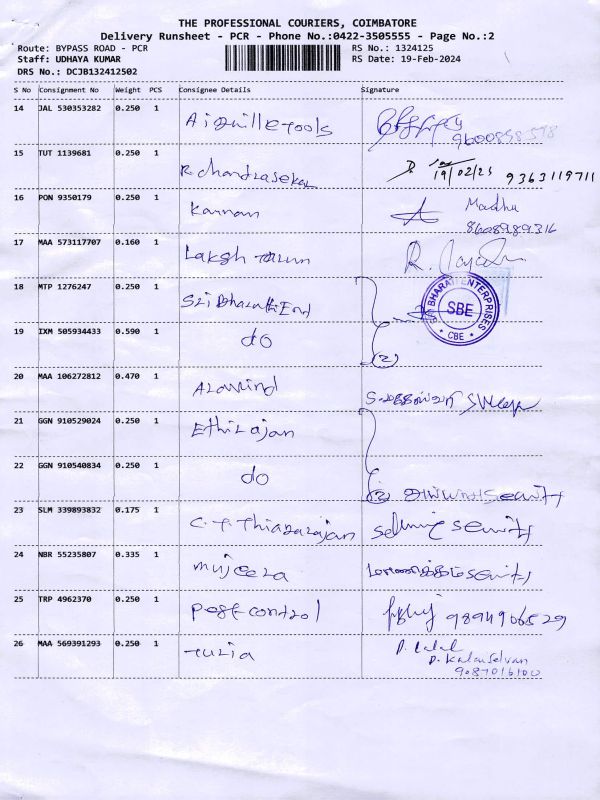 THE PROFESSIONAL COURIERS, COIMBATORE
Delivery Runsheet - PCR - Phone No.:0422-3505555 - Page No.:2
Route: BYPASS ROAD - PCR
RS No.: 1324125
Staff: UDHAYA KUMAR
RS Date: 19-Feb-2024
DRS No.: DCJB132412502
S No Consignment No Weight PCS Consignee Details Signature
14 JAL 530353282 0.250 1 tools
9600898578
15 TUT 1139681 0.250 1 R. chandrasekar 19/02/25 9363119711
16 PON 9350179 0.250 1 Kannan Madhu
8608989316
17 MAA 573117707 0.160 1 Laksh R.
18 MTP 1276247 0.250 1 Sri Bharathi End BHARATH ENTERPRISES SBE CBE
19 IXM 505934433 0.590 1 do (2)
20 MAA 106272812 0.470 1 Aravind
21 GGN 910529024 0.250 1 Ethirajan
22 GGN 910540834 0.250 1 do (2)
23 SLM 339893832 0.175 1 C. T. Thiagarajan
24 NBR 55235807 0.335 1 mujeera
25 TRP 4962370 0.250 1 Pest control 9894906529
26 MAA 569391293 0.250 1
D. Kalaiselvan
9087016100